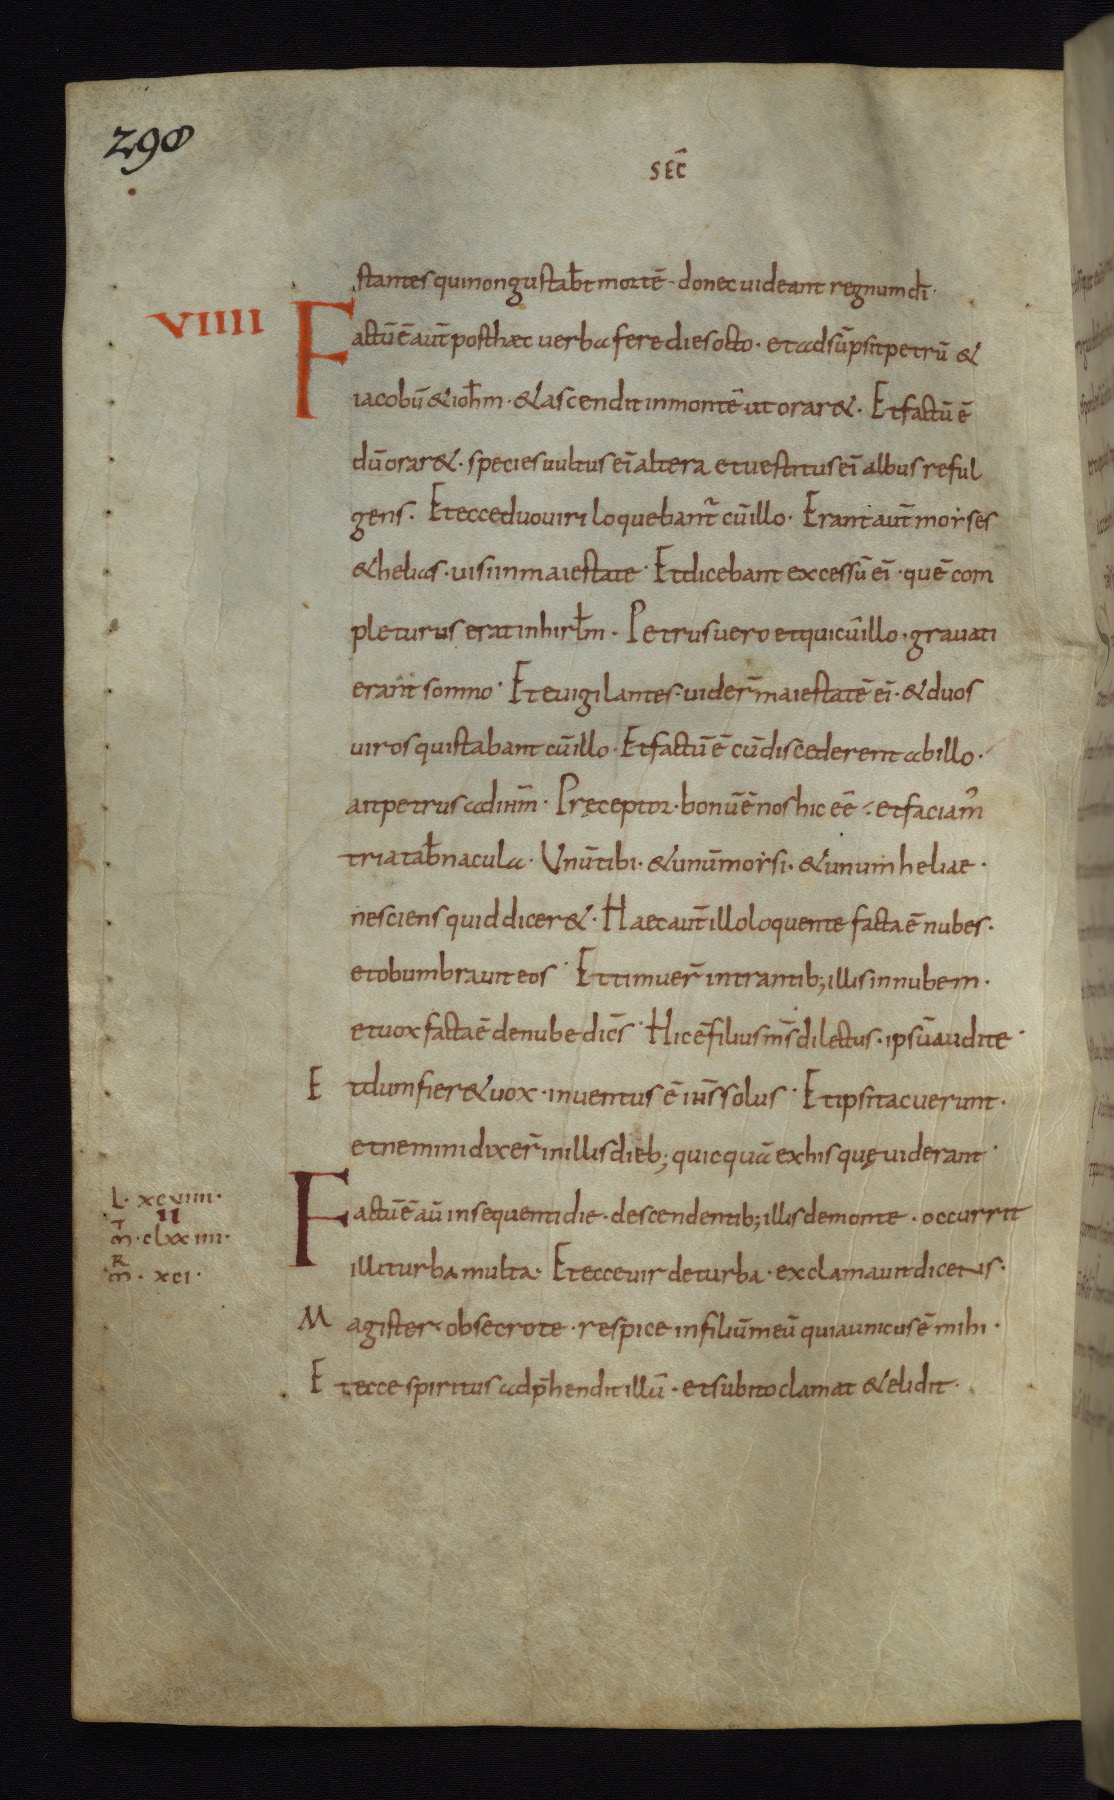 290
SEC̄
stantes qui non gustab̄t mortē · donec videant regnum dī ·
VIIII
Factū ē aūt post haec verba fere dies octo · et adsūpsit petrū &
iacobū & ioh̄m · & ascendit in montē ut orar& · Et factū ē
dū orar& · species vultus ei altera et vestitus ei albus reful
gens · Et ecce duo viri loquebant̄ cū illo · Erant aūt moẏses
& helias · visi in maiestate · Et dicebant excessū ei · quē com
pleturus erat in hirl̄m · Petrus vero et qui cū illo · gravati
erant somno · Et evigilantes · vider̄ maiestatē ei · & duos
viros qui stabant cū illo · Et factū ē cū discederent ab illo ·
ait petrus ad ih̄m · Pręceptor · bonū ē nos hic eē · et faciam̄
tria tab̄nacula · Unū tibi · & unū moẏsi · & unum heliae ·
nesciens quid dicer& · Haec aūt illo loquente facta ē nubes ·
et obumbravit eos · Et timuer̄ intrantib; illis in nubem ·
et vox facta ē de nube dicēs · Hic ē filius m̄s dilectus · ipsū audite ·
Et dum fier& vox · inventus ē ih̄s solus · Et ipsi tacuerunt ·
et nemini dixer̄ in illis dieb; quicquā ex his quę viderant ·
Factū ē aū in sequenti die · descendentib; illis de monte · occurrit
illi turba multa · Et ecce vir de turba · exclamavit dicens ·
Magister · obsecro te · respice in filiū meū quia unicus ē mihi ·
Et ecce spiritus adp̄hendit illū · et subito clamat & elidit ·
L · xcviiii ·
II
m̄ · clxxiiii ·
R
m̄ · xci ·